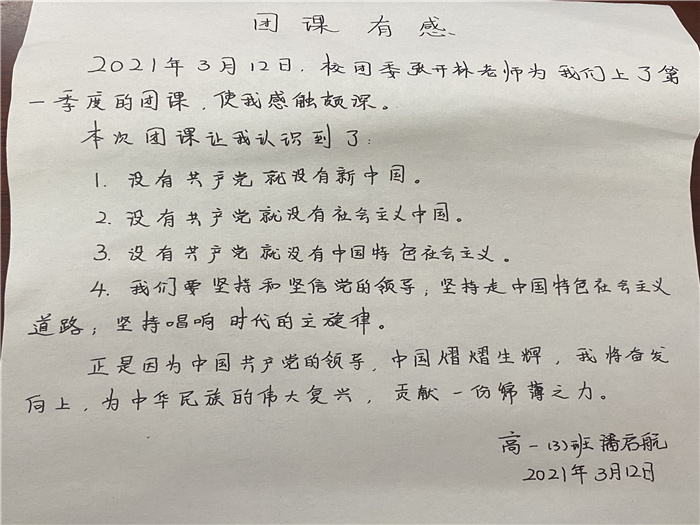 团课有感
2021年3月12日,校团委张开林老师为我们上了第
一季度的团课,使我感触颇深。
本次团课让我认识到了:
1. 没有共产党就没有新中国。
2. 没有共产党就没有社会主义中国。
3. 没有共产党就没有中国特色社会主义。
4. 我们要坚持和坚信党的领导;坚持走中国特色社会主义
道路;坚持唱响时代的主旋律。
正是因为中国共产党的领导,中国熠熠生辉,我将奋发
向上,为中华民族的伟大复兴,贡献一份绵薄之力。
高一(3)班 潘启航
2021年3月12日